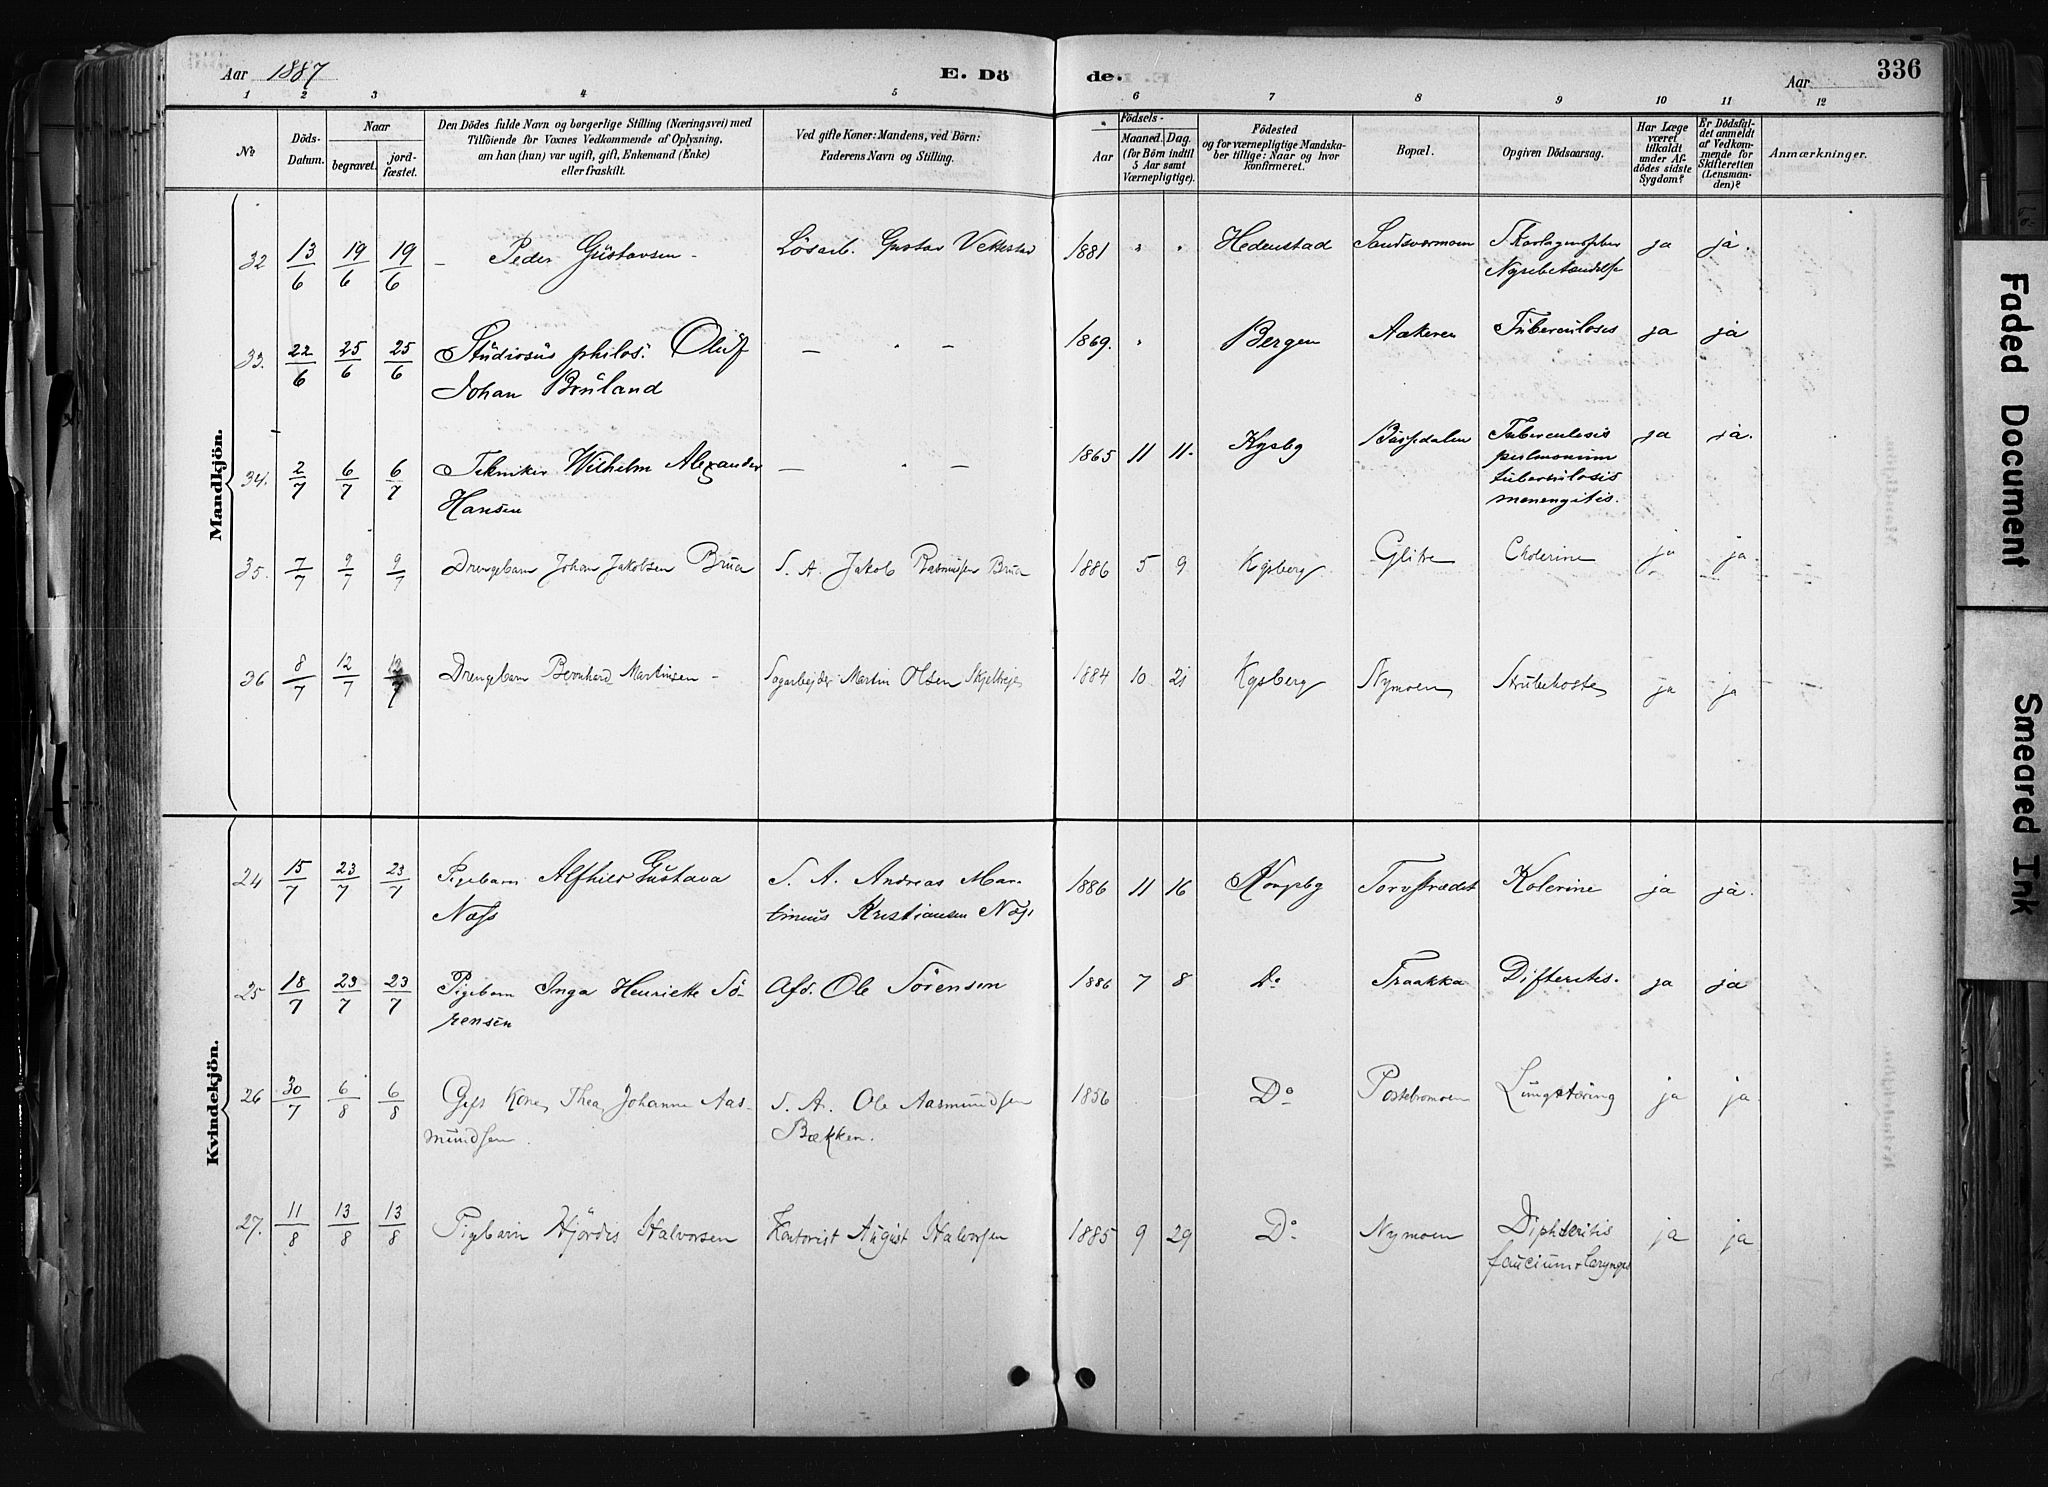 Aar 1887 E. Dö de. Aar 336
1 2 3 4 5 6 7 8 9 10 11 12
No
Döds-Datum.
Naar
begravet.
jordfæstet.
Den Dödes fulde Navn og borgerlige Stilling (Næringsvei) med
Tilföiende for Voxnes Vedkommende af Oplysning,
om han (hun) var ugift, gift, Enkemand (Enke)
eller fraskilt.
Ved gifte Koner: Mandens, ved Börn:
Faderens Navn og Stilling.
Födsels-
Aar
Maaned. Dag.
(for Börn indtil
5 Aar samt
Værnepligtige).
Födested
og for værnepligtige Mandskaber tillige: Naar og hvor
konfirmeret.
Bopæl.
Opgiven Dödsaarsag.
Har Læge
været
tilkaldt
under Afdödes sidste
Sygdom?
Er Dödsfaldet anmeldt
af Vedkommende for
Skifteretten
(Lensmanden)?
Anmærkninger.
Mandkjön.
32 13/6 19/6 19/6 – Peder Gustavsen – Lösarb. Gustav Vettestad 1881 " " Hedenstad Sandsværmoen Skarlagensfeber ja ja.
Nyrebetændelse
33. 22/6 25/6 25/6 Studiosus philos. Oluf – " – 1869. " Bergen Aakeren Tuberculosis ja ja
Johan Bruland
34. 2/7 6/7 6/7 Tekniker Wilhelm Alexander – " – 1865 11 11. Kgsbg Tuberculosis ja ja.
Hansen pulmonum
tuberculosis
menengitis.
35. 7/7 9/7 9/7 Drengebarn Johan Jakobsen Brua S. A. Jakob Rasmusen Brua 1886 5 9 Kgsberg Glitre Cholerine ja ja
36 8/7 12/7 12/7 Drengebarn Bernhard Martinsen – Sagarbejder Martin Olsen 1884 10 21 Kgsberg Nymoen Strubehoste ja ja
Kvindekjön.
24 15/7 23/7 23/7 Pigebarn Alfhild Gustava S. A. Andreas Mar- 1886 11 16 Kongsbg Torvstrædet Kolerine ja ja.
Næss tinius Kristiansen Næss
25 18/7 23/7 23/7 Pigebarn Inga Henriette Sö- Afd. Ole Sörensen 1886 7 8 Do Traakka Difteritis. ja ja
rensen
26 30/7 6/8 6/8 Gift Kone Thea Johanne Aas- S. A. Ole Aasmundsen 1856 Do Lungetæring ja ja
mundsen. Bækken.
27. 11/8 13/8 13/8 Pigebarn Hjördis Halvorsen Kontorist August Halvorsen 1885 9 29 Do Nymoen Diphteritis ja ja
faucium + laryngis
Faded Document
Smeared Ink